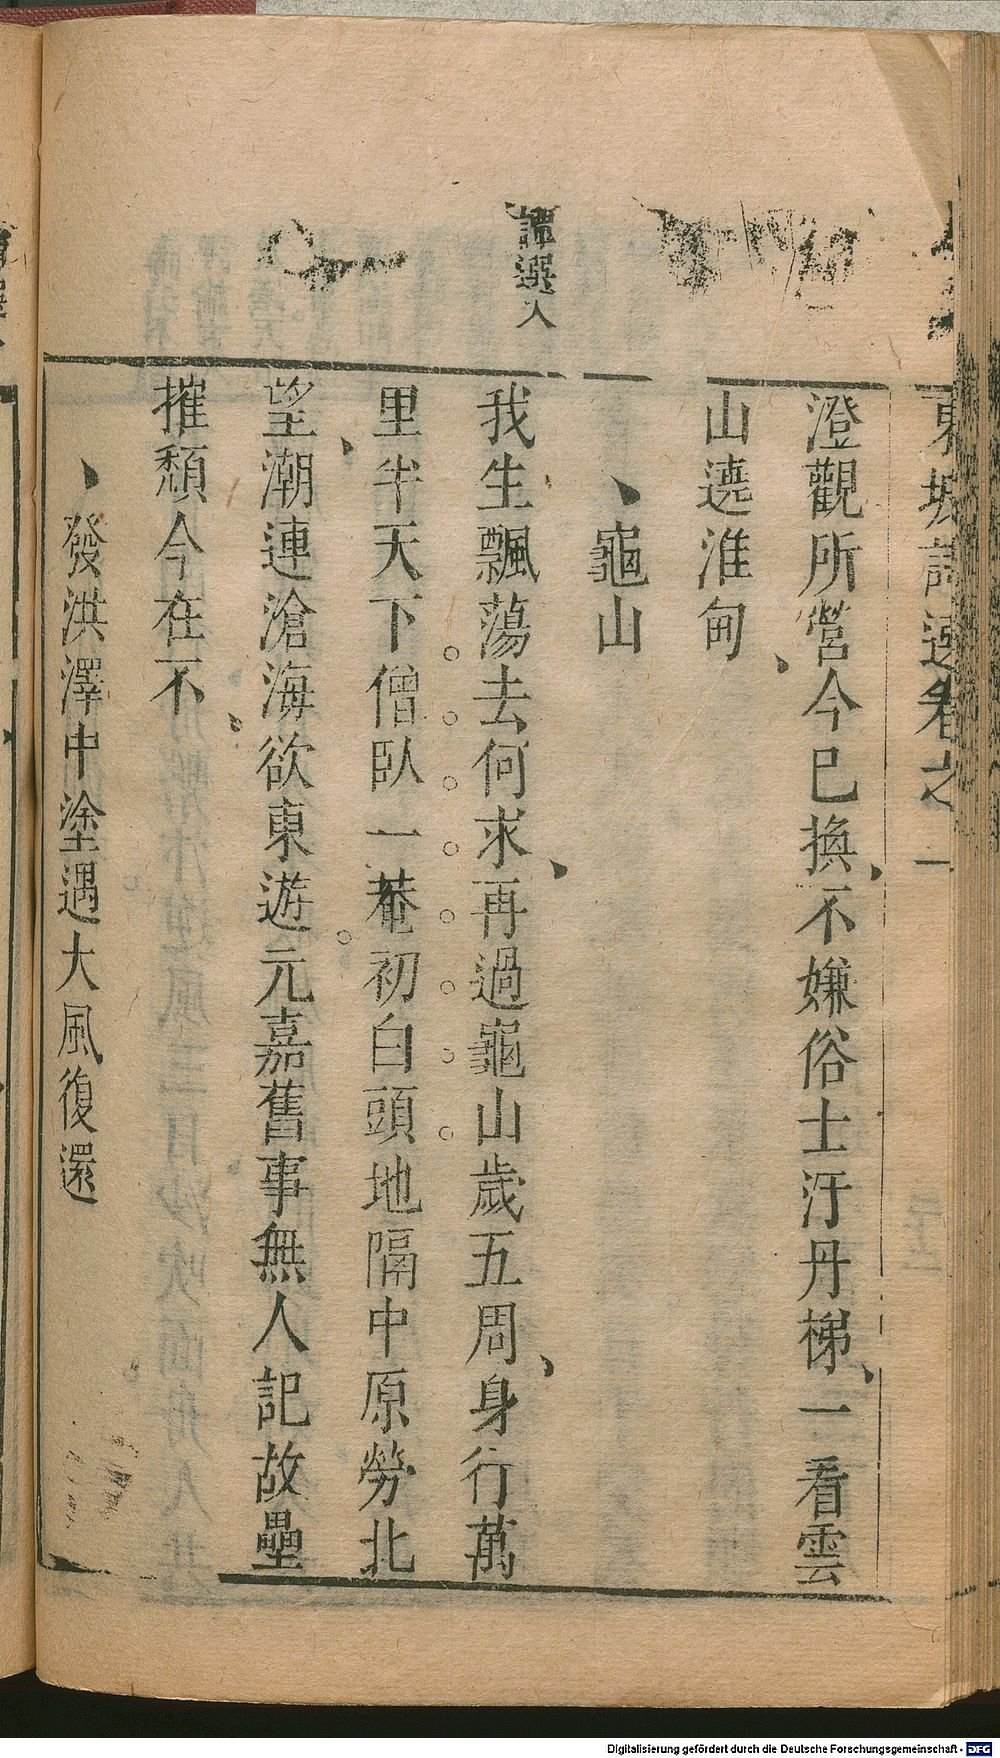 東坡詩選卷之一
澄觀所營今已換不嫌俗士汙丹梯一看雲
山遶淮甸
龜山
譚選入
我生飄蕩去何求再過龜山歲五周身行萬
里半天下僧臥一菴初白頭地隔中原勞北
望潮連滄海欲東遊元嘉舊事無人記故壘
摧頹今在不
發洪澤中塗遇大風復還
Digitalisierung gefördert durch die Deutsche Forschungsgemeinschaft - DFG